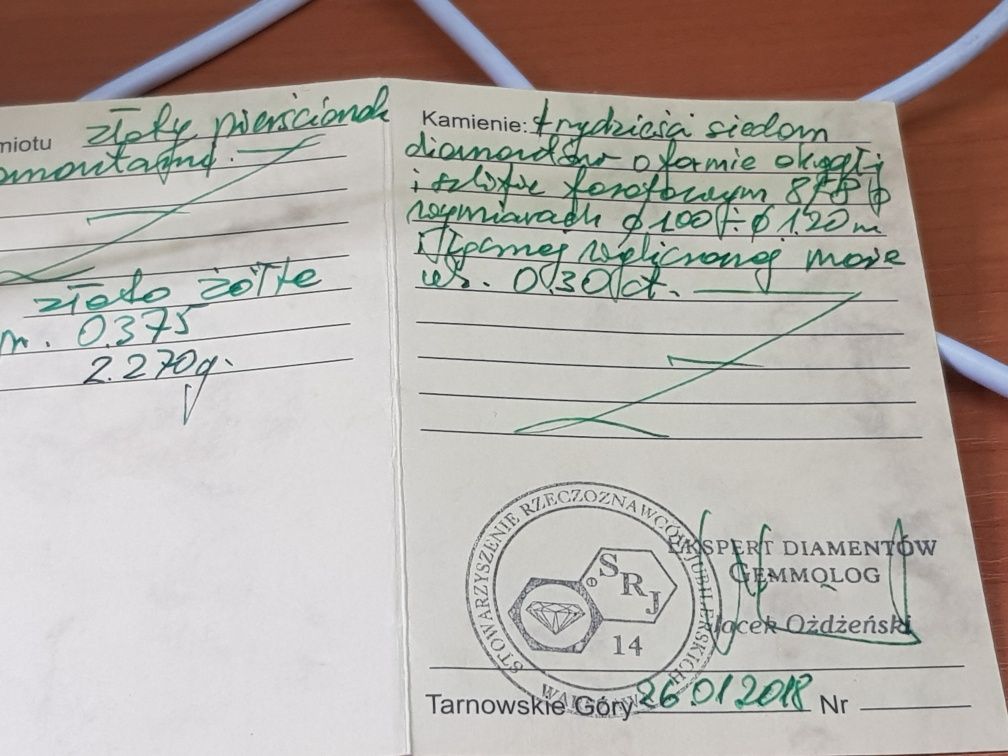 miotu złoty pierścionek
złoto żółte
0.375
2.270g.
Kamienie: trzydzieści siedem
diamentów o formie okrągłej
i szlifie fasetowym 8/8 o
wymiarach ϕ 1.00 ÷ ϕ 1.20 m
i łącznej wyliczonej masie
0.30 ct.
STOWARZYSZENIE RZECZOZNAWCÓW JUBILERSKICH
WARSZAWA
SRJ
14
EKSPERT DIAMENTÓW
GEMMOLOG
Jacek Ożdżeński
Tarnowskie Góry 26.01.2018 Nr